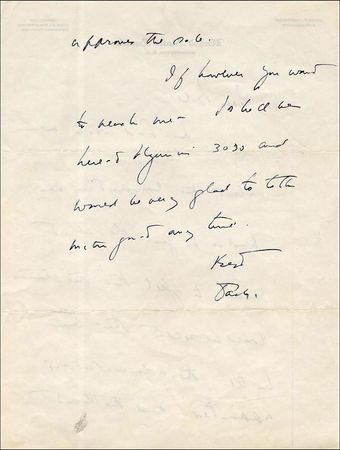 approves the sale.
If however you want
to reach me - I shall be
here - at Hyannis 3030 and
would be very glad to talk
with you at any time.
Best
Jack.